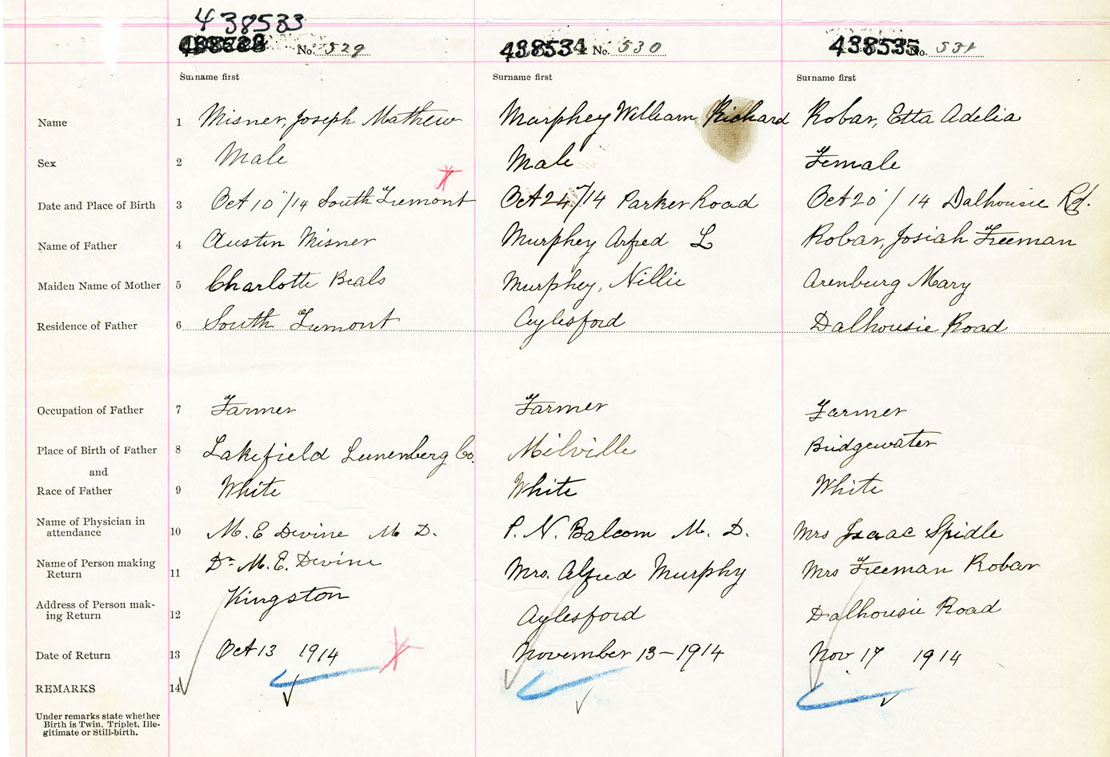 438533
No. 529 438534 No. 530 438535 No. 531
Surname first Surname first Surname first
Name 1 Misner, Joseph Mathew Murphey William Richard Robar, Etta Adelia
Sex 2 Male Male Female
Date and Place of Birth 3 Oct 10"/14 South Tremont Oct 24"/14 Parker Road Oct 20"/14 Dalhousie Rd.
Name of Father 4 Austin Misner Murphey Arfred L Robar, Josiah Freeman
Maiden Name of Mother 5 Charlotte Beals Murphey, Nillie Arenburg Mary
Residence of Father 6 South Tremont Aylesford Dalhousie Road
Occupation of Father 7 Farmer Farmer Farmer
Place of Birth of Father 8 Lakefield Lunenberg Co. Milville Bridgewater
and
Race of Father 9 White White White
Name of Physician in
attendance 10 M. E Devine M D. P. N. Balcom M. D. Mrs Isaac Spidle
Name of Person making
Return 11 Dr M. E. Devine Mrs. Alfred Murphy Mrs Freeman Robar
Address of Person mak-
ing Return 12 Kingston Aylesford Dalhousie Road
Date of Return 13 Oct 13 1914 November 13-1914 Nov 17 1914
REMARKS 14
Under remarks state whether
Birth is Twin, Triplet, Ille-
gitimate or Still-birth.